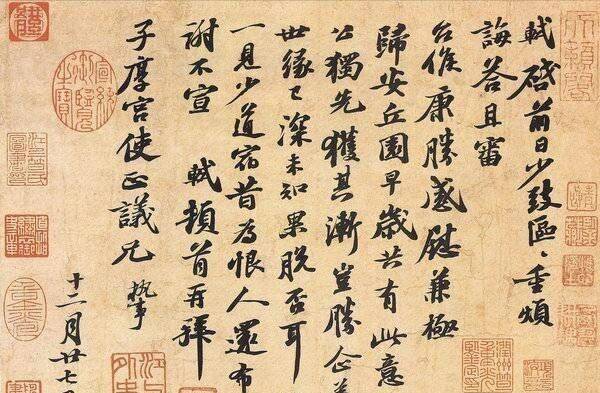 軾啓前日少致區〻重煩
誨答且審
台候康勝感慰兼極
歸安丘園早歲共有此意
公獨先獲其漸豈勝企
世緣已深未知果脫否耳
一見少道宿昔為恨人還布
謝不宣 軾頓首再拜
子厚宮使正議兄 執事
十二月廿七日